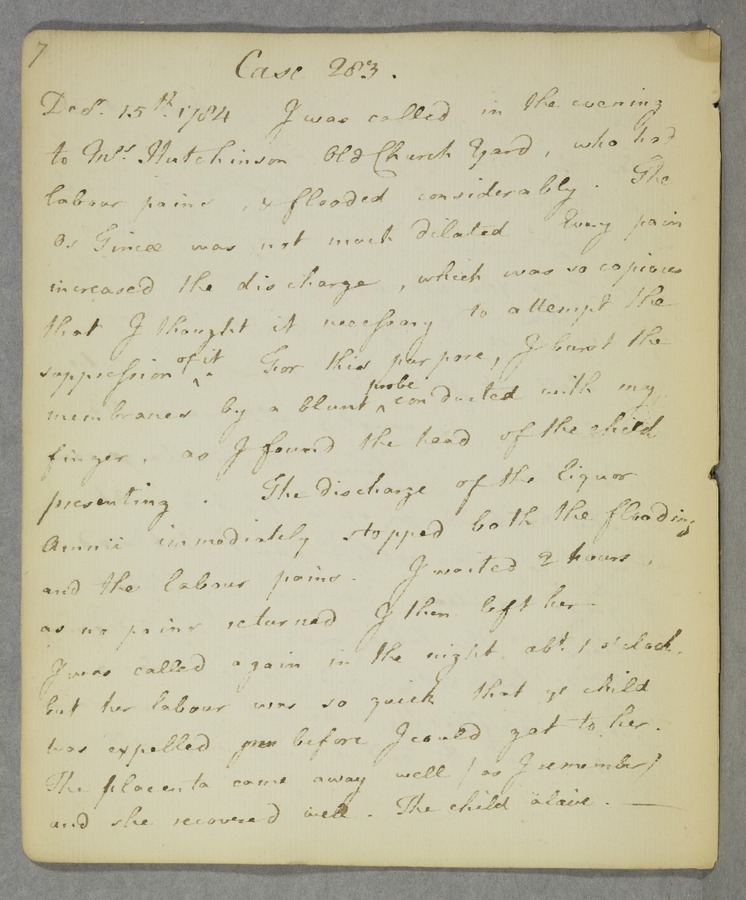 7
Case 283.
Decr. 15th. 1784 I was called in the evening
to Mrs Hutchinson Old Church Yard, who had
labour pains, & flooded considerably. The
Os Tincæ was not much dilated Every pain
increased the discharge, which was so copious
that I thought it necessary to attempt the
suppression of it For this purpose, I burst the
membranes by a blunt probe conducted with my
finger, as I found the head of the child
presenting. The discharge of the liquor
Amnii immediately stopped both the flooding
and the labour pains. I waited 2 hours,
as no pains returned I then left her
I was called again in the night abt. 1 o'clock,
but her labour was so quick that ye child
was expelled before I could get to her.
The placenta came away well (as I remember)
and she recovered well. The child alive.